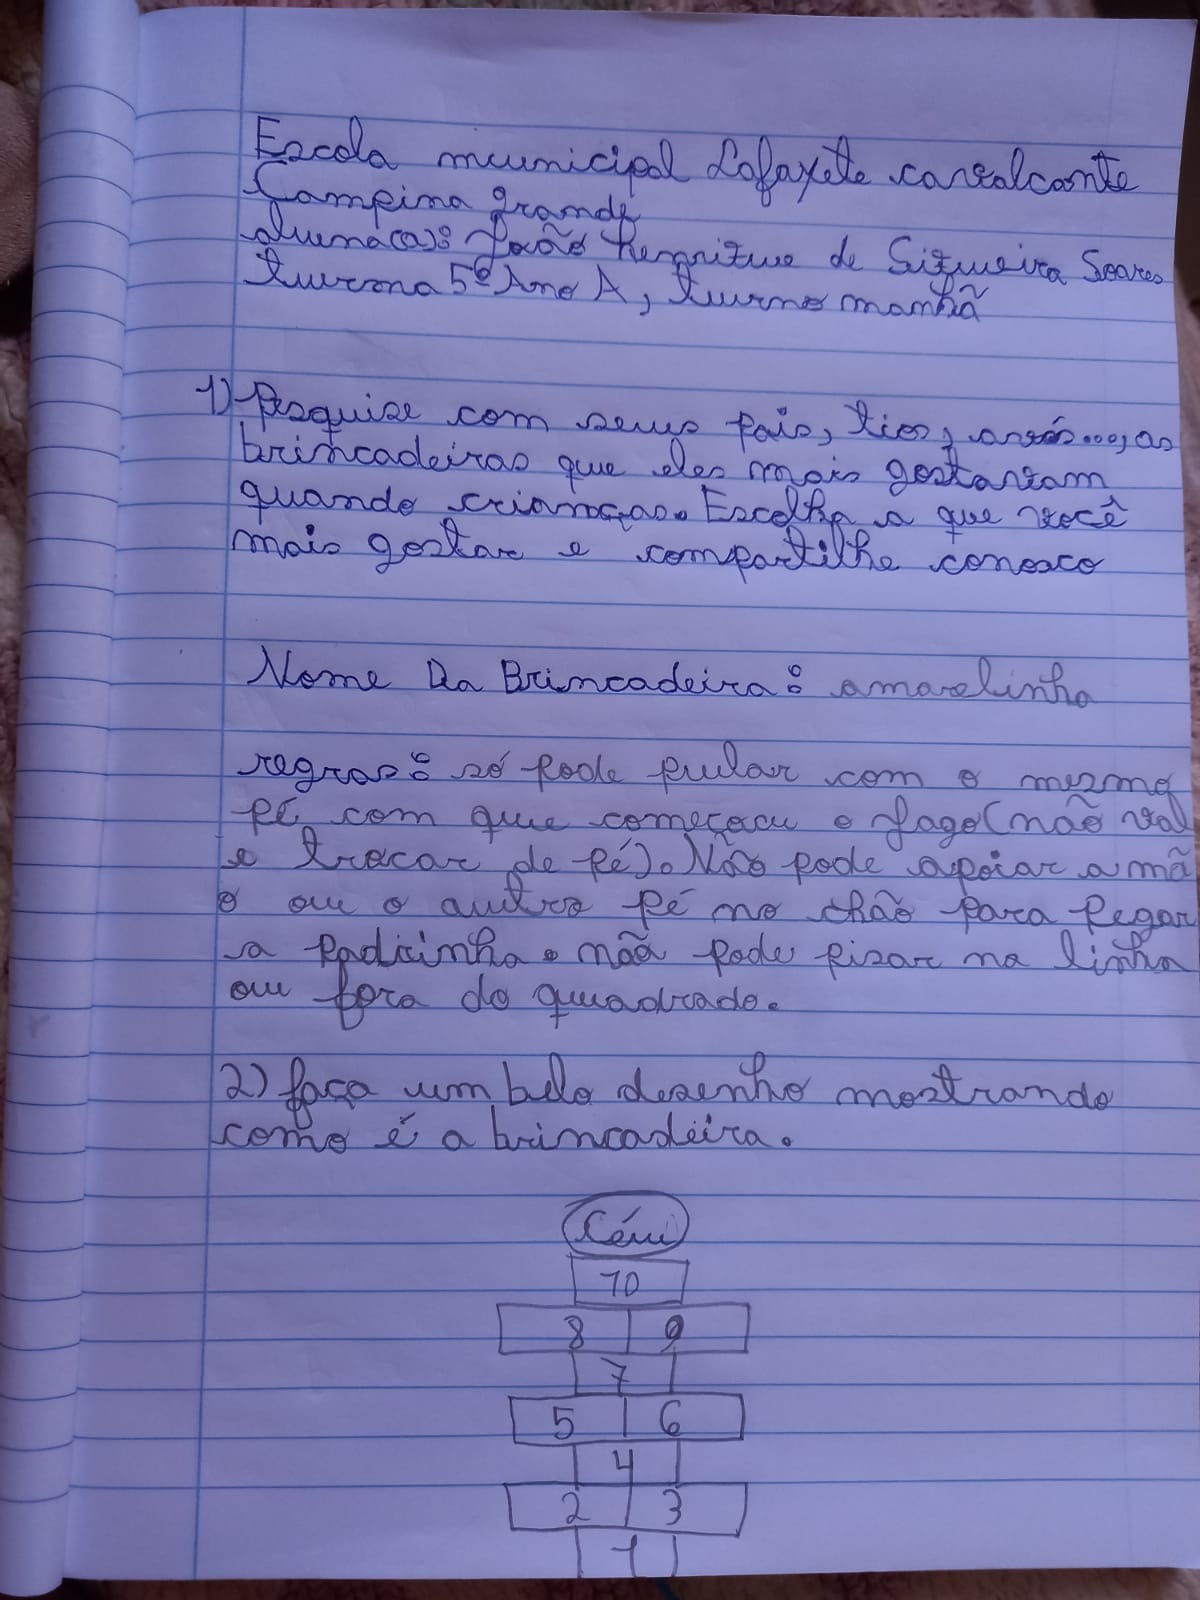 Escola municipal Lafayete cavalcante
Campina grande
aluna(a): João Henrique de Siqueira Soares
turma 5º Ano A, turno manhã
1) Pesquise com seus pais, tios, avós..., as
brincadeiras que eles mais gostavam
quando crianças. Escolha a que você
mais gostar e compartilhe conosco
Nome Da Brincadeira: amarelinha
regras: só pode pular com o mesmo
pé com que começou o jogo (não val
e trocar de pé). Não pode apoiar a mã
o ou o outro pé no chão para pegar
a pedrinha. não pode pisar na linha
ou fora do quadrado.
2) faça um belo desenho mostrando
como é a brincadeira.
Céu
10
8 9
7
5 6
4
2 3
1